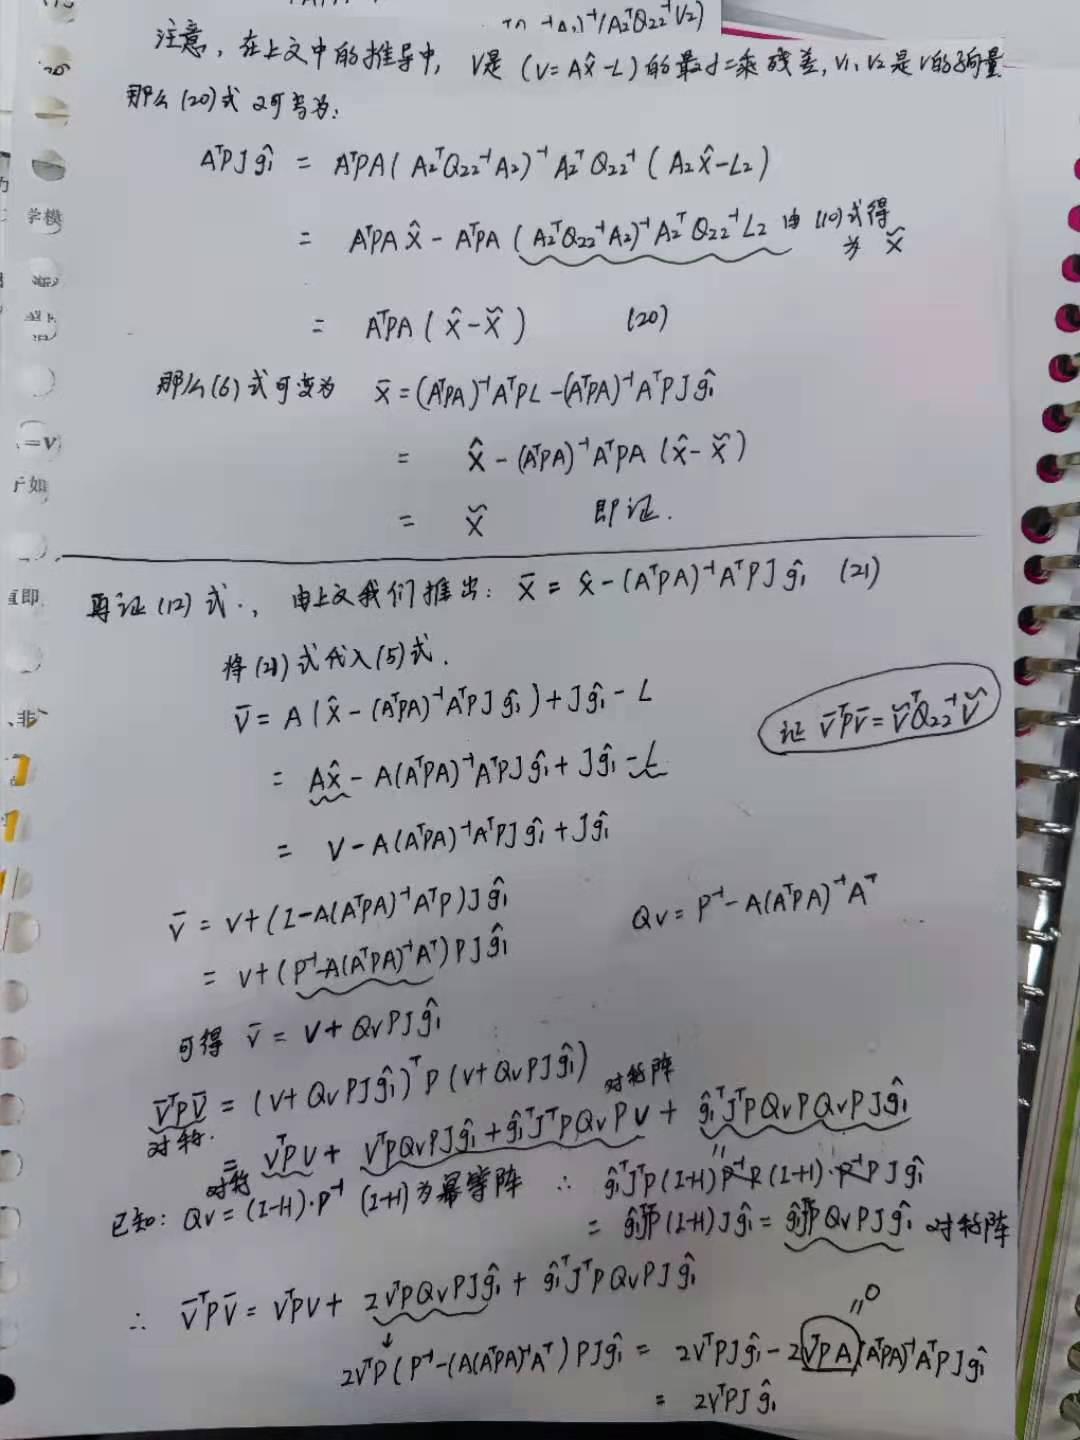 注意，在上文中的推导中，V是（V=AX̂-L）的最小二乘残差，V₁、V₂是V的子向量
那么(20)式又可写为：
AᵀPJĝ₁ = AᵀPA(A₂ᵀQ₂₂⁻¹A₂)⁻¹A₂ᵀQ₂₂⁻¹(A₂X̂-L₂)
= AᵀPAX̂ - AᵀPA(A₂ᵀQ₂₂⁻¹A₂)⁻¹A₂ᵀQ₂₂⁻¹L₂ 由(10)式得
为 X̆
= AᵀPA(X̂-X̆) (20)
那么(6)式可变为 X̄=(AᵀPA)⁻¹AᵀPL-(AᵀPA)⁻¹AᵀPJĝ₁
= X̂-(AᵀPA)⁻¹AᵀPA(X̂-X̆)
= X̆ 即证.
再证(12)式., 由上文我们推出: X̄ = X̂-(AᵀPA)⁻¹AᵀPJĝ₁ (21)
将(21)式代入(5)式.
V̄ = A(X̂-(AᵀPA)⁻¹AᵀPJĝ₁)+Jĝ₁-L
证 V̄ᵀPV̄=V̆ᵀQ₂₂⁻¹V̆
= AX̂-A(AᵀPA)⁻¹AᵀPJĝ₁+Jĝ₁-L
= V-A(AᵀPA)⁻¹AᵀPJĝ₁+Jĝ₁
V̄ = V+(I-A(AᵀPA)⁻¹AᵀP)Jĝ₁
Qv=P⁻¹-A(AᵀPA)⁻¹Aᵀ
= V+(P⁻¹-A(AᵀPA)⁻¹Aᵀ)PJĝ₁
可得 V̄ = V+QvPJĝ₁
V̄ᵀPV̄ = (V+QvPJĝ₁)ᵀP(V+QvPJĝ₁) 对称阵
对称.
= VᵀPV + VᵀPQvPJĝ₁+ĝ₁ᵀJᵀPQvPV + ĝ₁ᵀJᵀPQvPQvPJĝ₁
对称
已知: Qv=(I-H)·P⁻¹ (I-H)为幂等阵 ∴ ĝ₁ᵀJᵀP(I-H)P⁻¹P(I-H)·P⁻¹PJĝ₁
= ĝ₁ᵀJᵀP(I-H)Jĝ₁ = ĝ₁ᵀJᵀPQvPJĝ₁ 对称阵
∴ V̄ᵀPV̄ = VᵀPV + 2VᵀPQvPJĝ₁ + ĝ₁ᵀJᵀPQvPJĝ₁
=0
2VᵀP(P⁻¹-(A(AᵀPA)⁻¹Aᵀ)PJĝ₁ = 2VᵀPJĝ₁-2VᵀPA(AᵀPA)⁻¹AᵀPJĝ₁
= 2VᵀPJĝ₁
学模
=V
如
直即
非